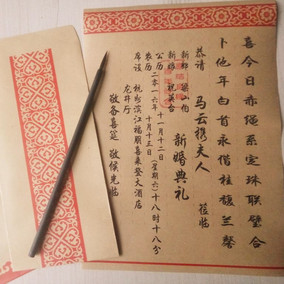 喜今日赤绳系定珠联璧合
卜他年白首永偕桂馥兰馨
恭请
马云携夫人 莅临
新郎 梁山伯
新娘 祝英台 新婚典礼
公历 二零一六年十一月十二日(星期六)十八时十八分
农历 十月十三日
席设 杭州滨江福朋喜来登大酒店
龙井厅
敬备喜筵 敬候光临